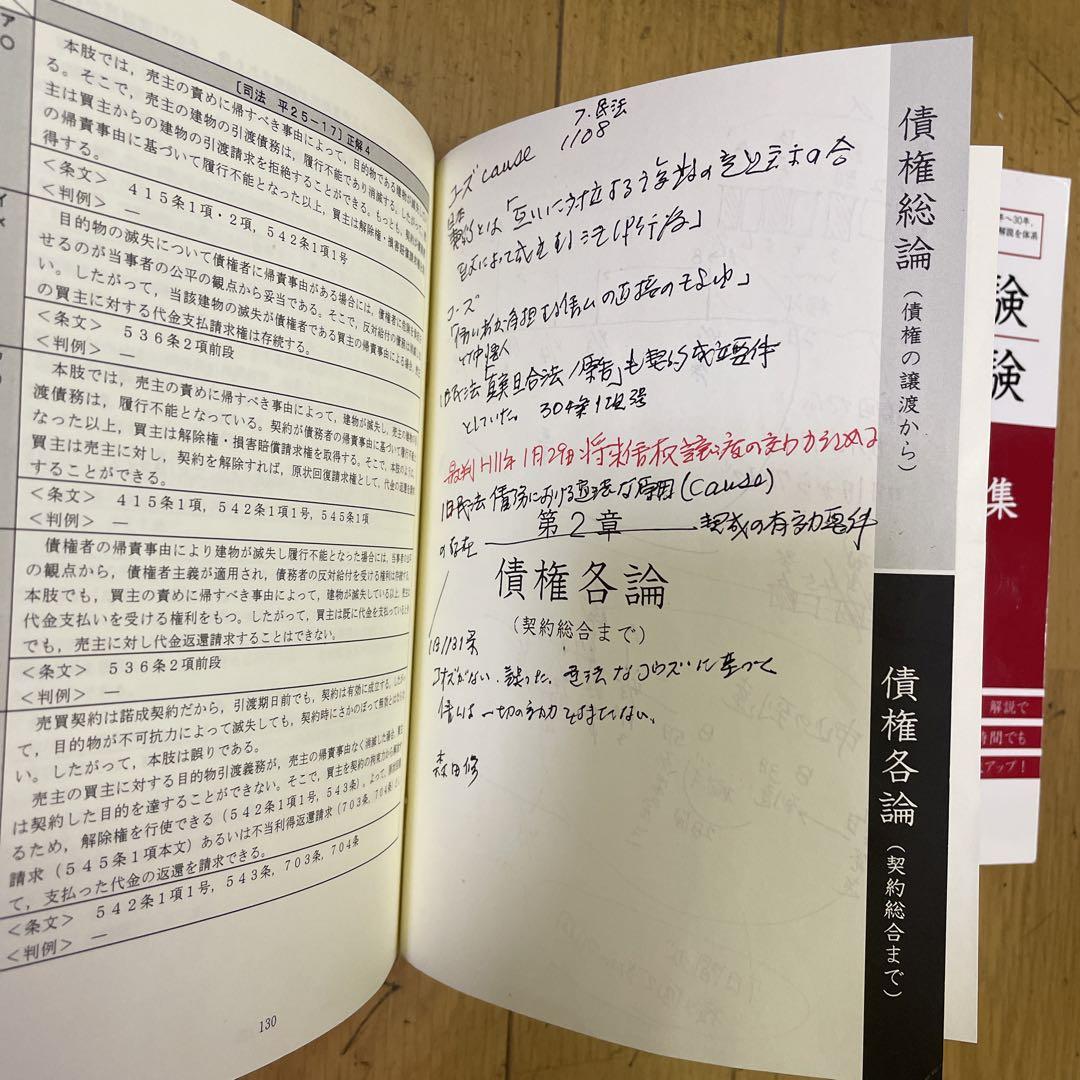 [司法 平25-17] 正解4
ア
○
本肢では，売主の責めに帰すべき事由によって，目的物である建物が滅失し
る。そこで，売主の建物の引渡債務は，履行不能であり消滅する。したがって
主は買主からの建物の引渡請求を拒絶することができる。もっとも，契約が
の帰責事由に基づいて履行不能となった以上，買主は解除権・損害賠償請求権を取
得する。
<条文> ４１５条１項・２項，５４２条１項１号
<判例> ―
イ
×
目的物の滅失について債権者に帰責事由がある場合には，債権者に
せるのが当事者の公平の観点から妥当である。そこで，反対給付の債務は
したがって，当該建物の滅失が債権者である買主の帰責事由による場合，売主
の買主に対する代金支払請求権は存続する。
<条文> ５３６条２項前段
<判例> ―
本肢では，売主の責めに帰すべき事由によって，建物が滅失し，売主の建物の引
渡債務は，履行不能となっている。契約が債務者の帰責事由に基づいて履行不能と
なった以上，買主は解除権・損害賠償請求権を取得する。そこで，本肢のように，
買主は売主に対し，契約を解除すれば，原状回復請求権として，代金の返還を請求
することができる。
<条文> ４１５条１項，５４２条１項１号，５４５条１項
<判例> ―
債権者の帰責事由により建物が滅失し履行不能となった場合には，当事者の公平
の観点から，債権者主義が適用され，債務者の反対給付を受ける権利は存続する。
本肢でも，買主の責めに帰すべき事由によって，建物が滅失している以上，売主は
代金支払いを受ける権利をもつ。したがって，買主は既に代金を支払っているとき
でも，売主に対し代金返還請求することはできない。
<条文> ５３６条２項前段
<判例> ―
売買契約は諾成契約だから，引渡期日前でも，契約は有効に成立する。したがっ
て，目的物が不可抗力によって滅失しても，契約時にさかのぼって無効とはならな
い。したがって，本肢は誤りである。
売主の買主に対する目的物引渡義務が，売主の帰責事由なく消滅した場合，買主
は契約した目的を達することができない。そこで，買主を契約の拘束力から解放す
るため，解除権を行使できる（５４２条１項１号，５４３条）。よって，原状回復
請求（５４５条１項本文）あるいは不当利得返還請求（７０３条，７０４条）とし
て，支払った代金の返還を請求できる。
<条文> ５４２条１項１号，５４３条，７０３条，７０４条
<判例> ―
130
7.民法
1108
コーズ cause
契約とは「互いに対立する複数の意思表示の合
致によって成立する法律行為」
コーズ
旧民法 真実且合法ノ原因」も契約成立要件
としていた。 304条1項2号
最判H11年1月29日:将来債権譲渡の効力を認める
旧民法 債務における適法な原因(cause)
の存在 契成の有効要件
第２章
債権各論
（契約総合まで）
旧1131条
コーズがない、誤った、違法なコウズに基づく
債ムは一切の効力を持てない。
森田修
債権総論（債権の譲渡から）
債権各論（契約総合まで）
年～30年，
解説を体系
験
験
集
解説で
時間でも
アップ！